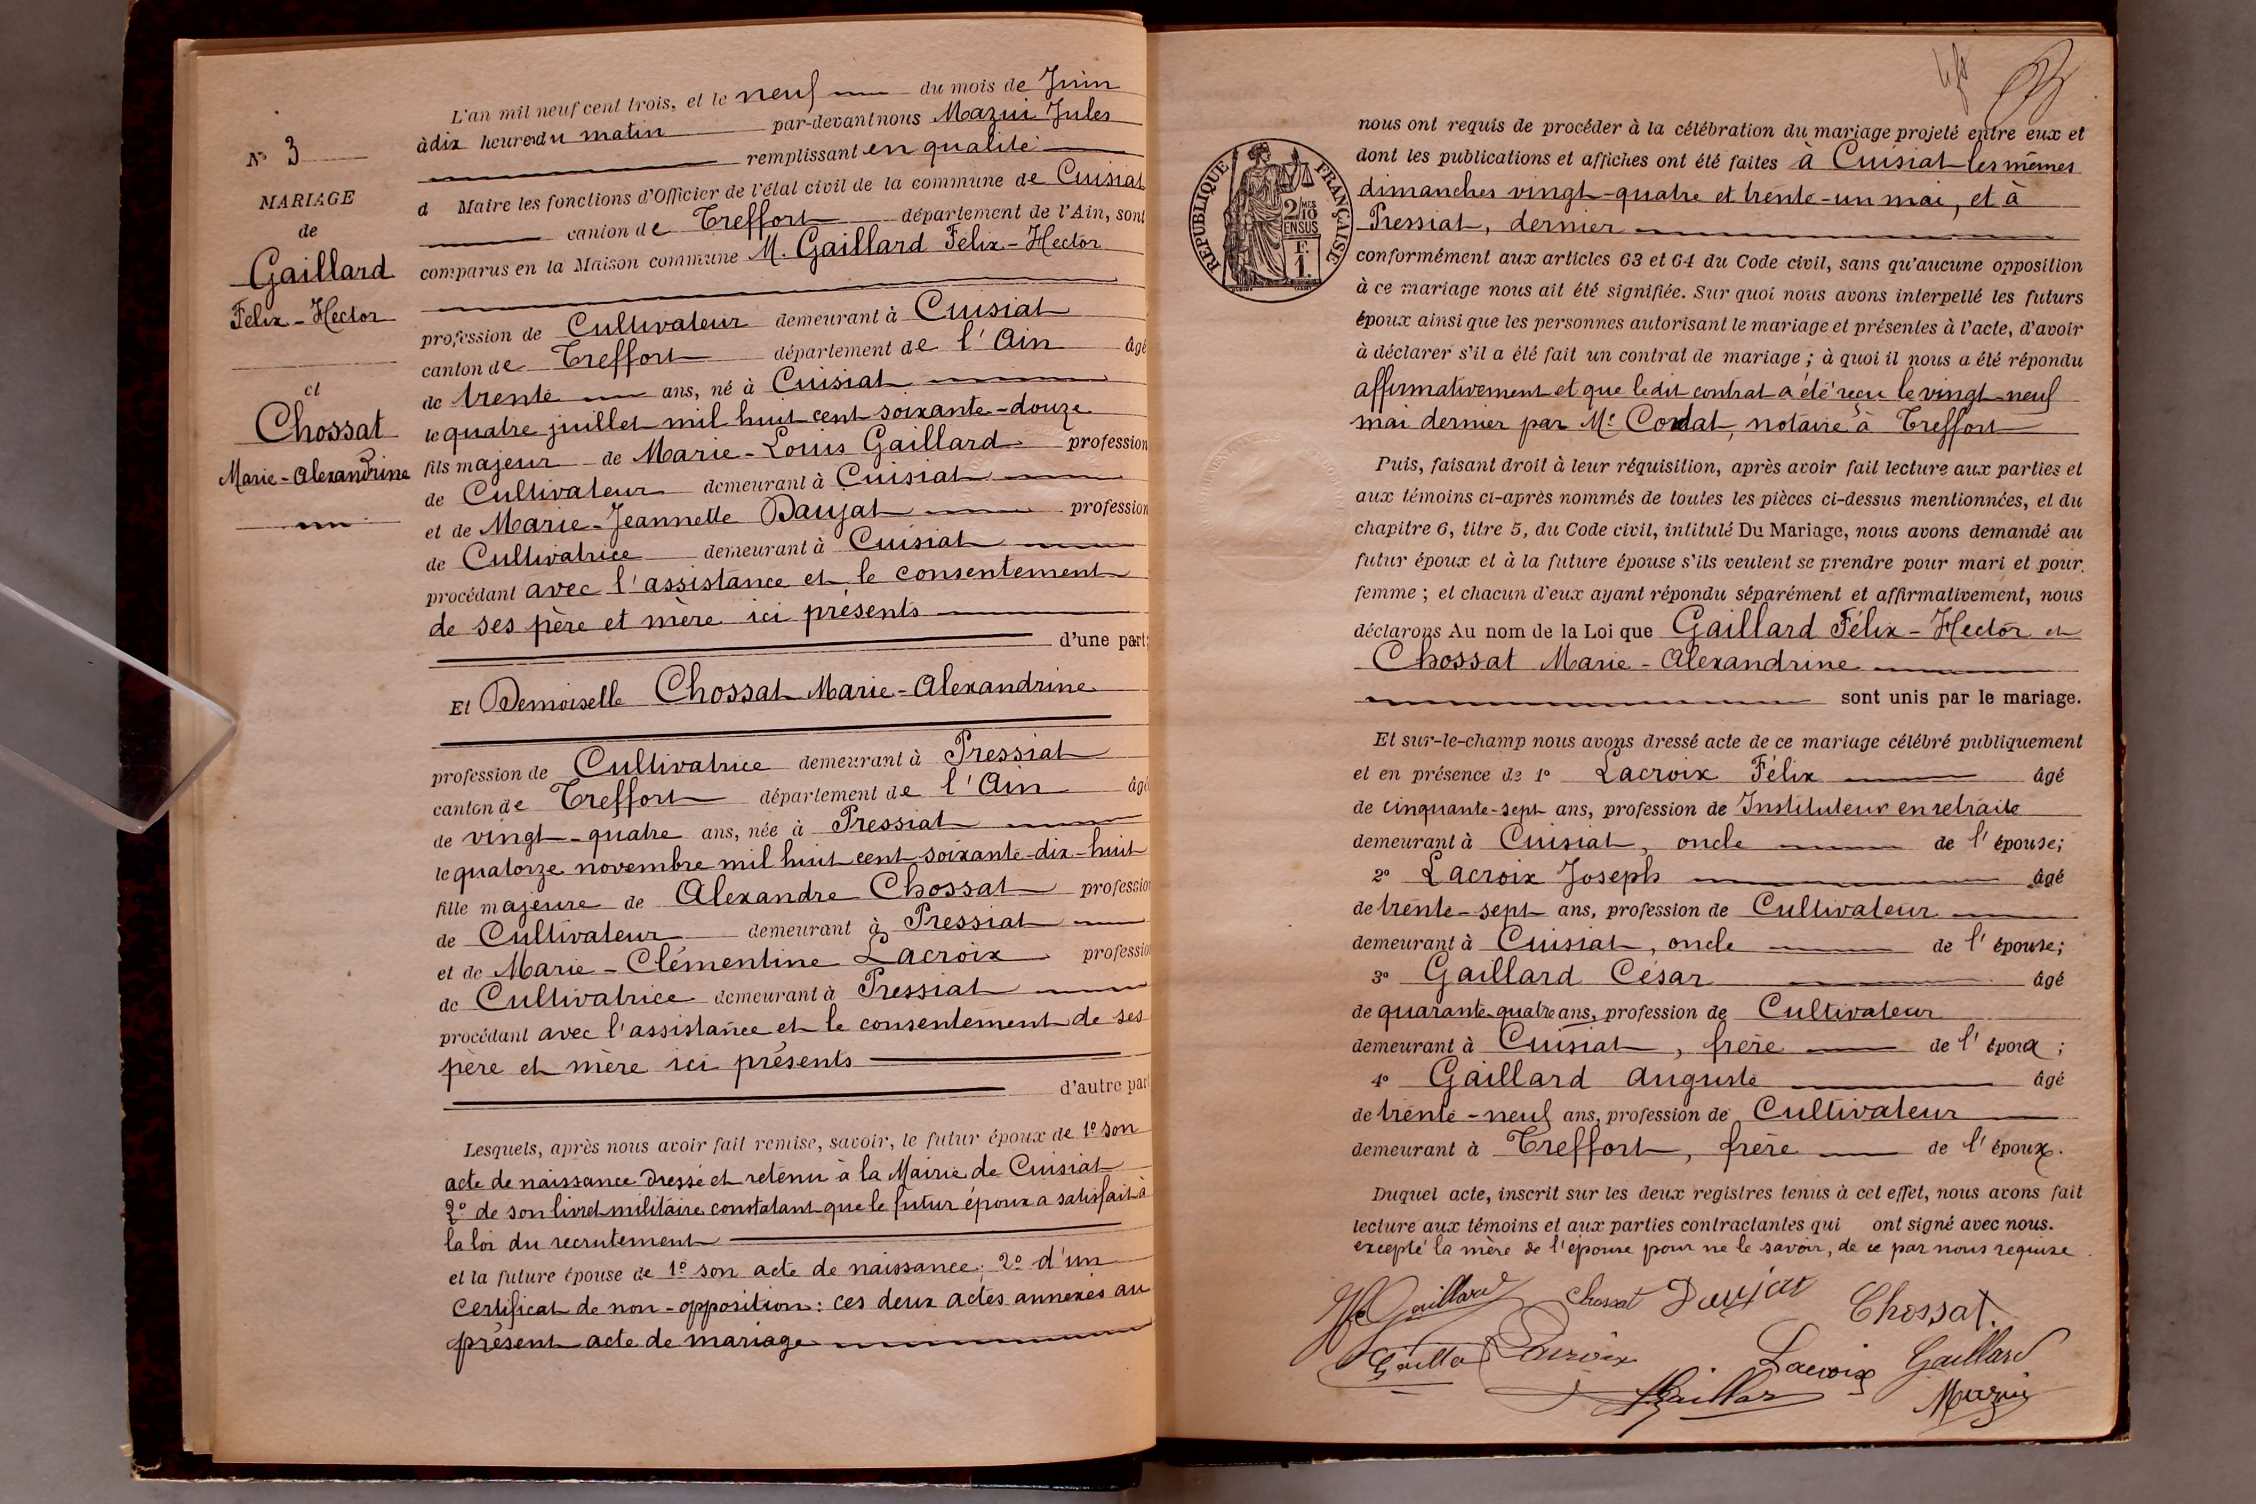 N° 3
MARIAGE
de
Gaillard
Félix-Hector
et
Chossat
Marie-Alexandrine
L'an mil neuf cent trois, et le neuf du mois de Juin
à dix heures du matin par-devant nous Mazui Jules
remplissant en qualité
d Maire les fonctions d'Officier de l'état civil de la commune de Cuisiat
canton de Treffort département de l'Ain, sont
comparus en la Maison commune M. Gaillard Félix-Hector
profession de Cultivateur demeurant à Cuisiat
canton de Treffort département de l'Ain âgé
de trente ans, né à Cuisiat
le quatre juillet mil huit cent soixante-douze
fils majeur de Marie-Louis Gaillard profession
de Cultivateur demeurant à Cuisiat
et de Marie-Jeannette Daujat profession
de Cultivatrice demeurant à Cuisiat
procédant avec l'assistance et le consentement
de ses père et mère ici présents
d'une part;
Et Demoiselle Chossat Marie-Alexandrine
profession de Cultivatrice demeurant à Pressiat
canton de Treffort département de l'Ain âgé
de vingt-quatre ans, née à Pressiat
le quatorze novembre mil huit cent soixante-dix-huit
fille majeure de Alexandre Chossat profession
de Cultivateur demeurant à Pressiat
et de Marie-Clémentine Lacroix profession
de Cultivatrice demeurant à Pressiat
procédant avec l'assistance et le consentement de ses
père et mère ici présents
d'autre part
Lesquels, après nous avoir fait remise, savoir, le futur époux de 1° son
acte de naissance dressé et retenu à la Mairie de Cuisiat
2° de son livret militaire constatant que le futur époux a satisfait à
la loi du recrutement
et la future épouse de 1° son acte de naissance; 2° d'un
certificat de non-opposition: ces deux actes annexés au
présent acte de mariage
RÉPUBLIQUE FRANÇAISE
2/10 MES
EN SUS
F.
1.
nous ont requis de procéder à la célébration du mariage projeté entre eux et
dont les publications et affiches ont été faites à Cuisiat les mêmes
dimanches vingt-quatre et trente-un mai, et à
Pressiat, dernier
conformément aux articles 63 et 64 du Code civil, sans qu'aucune opposition
à ce mariage nous ait été signifiée. Sur quoi nous avons interpellé les futurs
époux ainsi que les personnes autorisant le mariage et présentes à l'acte, d'avoir
à déclarer s'il a été fait un contrat de mariage; à quoi il nous a été répondu
affirmativement et que ledit contrat a été reçu le vingt-neuf
mai dernier par Me Cordat, notaire à Treffort
Puis, faisant droit à leur réquisition, après avoir fait lecture aux parties et
aux témoins ci-après nommés de toutes les pièces ci-dessus mentionnées, et du
chapitre 6, titre 5, du Code civil, intitulé Du Mariage, nous avons demandé au
futur époux et à la future épouse s'ils veulent se prendre pour mari et pour
femme; et chacun d'eux ayant répondu séparément et affirmativement, nous
déclarons Au nom de la Loi que Gaillard Félix-Hector et
Chossat Marie-Alexandrine
sont unis par le mariage.
Et sur-le-champ nous avons dressé acte de ce mariage célébré publiquement
et en présence de 1° Lacroix Félix âgé
de cinquante-sept ans, profession de Instituteur en retraite
demeurant à Cuisiat, oncle de l'épouse;
2° Lacroix Joseph âgé
de trente-sept ans, profession de Cultivateur
demeurant à Cuisiat, oncle de l'épouse;
3° Gaillard César âgé
de quarante-quatre ans, profession de Cultivateur
demeurant à Cuisiat, frère de l'époux;
4° Gaillard Auguste âgé
de trente-neuf ans, profession de Cultivateur
demeurant à Treffort, frère de l'époux.
Duquel acte, inscrit sur les deux registres tenus à cet effet, nous avons fait
lecture aux témoins et aux parties contractantes qui ont signé avec nous.
excepté la mère de l'épouse pour ne le savoir, de ce par nous requise
Gaillard Chossat Daujat Chossat
Lacroix Lacroix Gaillard
Gaillard Mazui